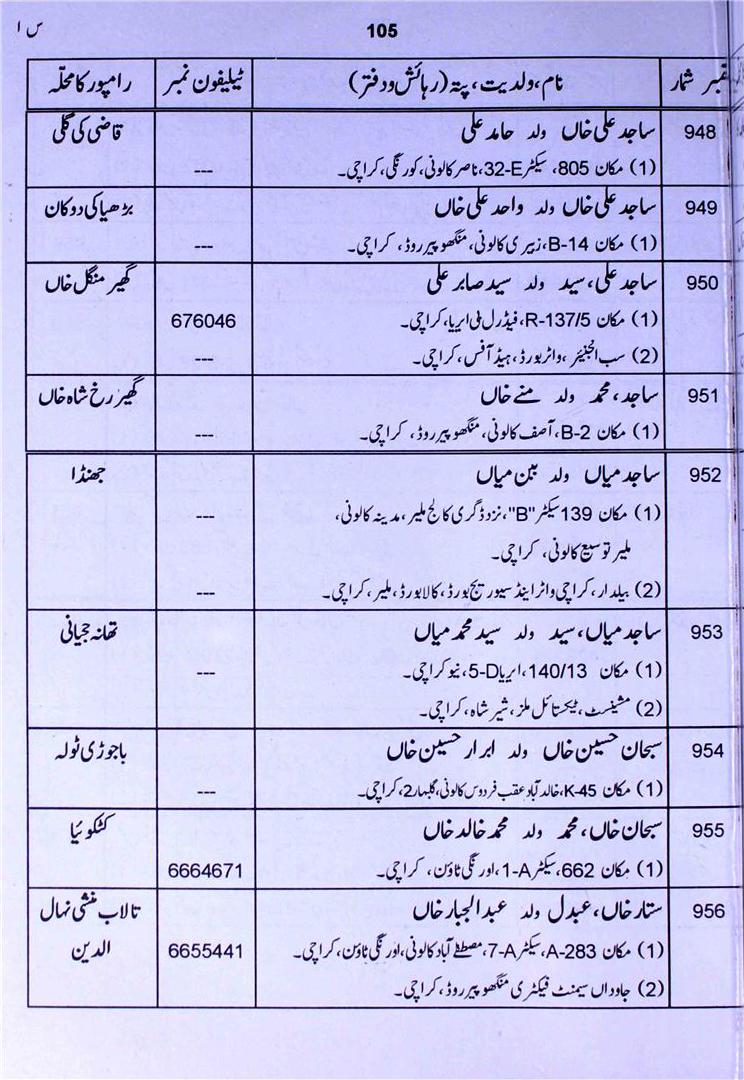 س ا
105
نمبر شمار | نام، ولدیت، پتہ (رہائش و دفتر) | ٹیلیفون نمبر | رامپور کا محلّہ
948 | ساجد علی خاں ولد حامد علی | قاضی کی گلی
(1) مکان 805، سیکٹر 32-E، ناصر کالونی، کورنگی، کراچی۔ | ---
949 | ساجد علی خاں ولد واحد علی خاں | بڑھیا کی دوکان
(1) مکان B-14، زبیری کالونی، منگھو پیر روڈ، کراچی۔ | ---
950 | ساجد علی، سید ولد سید صابر علی | گھیر منگل خاں
(1) مکان R-137/5، فیڈرل بی ایریا، کراچی۔ | 676046
(2) سب انجنیئر، واٹر بورڈ، ہیڈ آفس، کراچی۔ | ---
951 | ساجد، محمد ولد منے خاں | گھیر رخ شاہ خاں
(1) مکان B-2، آصف کالونی، منگھو پیر روڈ، کراچی۔ | ---
952 | ساجد میاں ولد ببن میاں | جھنڈا
(1) مکان 139 سیکٹر "B"، نزد ڈگری کالج ملیر، مدینہ کالونی، | ---
ملیر توسیع کالونی، کراچی۔
(2) بیلدار، کراچی واٹر اینڈ سیوریج بورڈ، کالا بورڈ، ملیر، کراچی۔ | ---
953 | ساجد میاں، سید ولد سید محمد میاں | تھانہ
(1) مکان 140/13، ایریا 5-D، نیو کراچی۔ | ---
(2) مشینسٹ، ٹیکسٹائل ملز، شیر شاہ، کراچی۔
954 | سبحان حسین خاں ولد ابرار حسین خاں | باجوڑی ٹولہ
(1) مکان K-45، خالد آباد عقب فردوس کالونی، گلبہار 2، کراچی۔ | ---
955 | سبحان خاں، محمد ولد محمد خالد خاں | کٹکوئیا
(1) مکان 662، سیکٹر 1-A، اورنگی ٹاؤن، کراچی۔ | 6664671
956 | ستار خاں، عبدل ولد عبدالجبار خاں | تالاب منشی نہال
(1) مکان A-283، سیکٹر 7-A، مصطفےٰ آباد کالونی، اورنگی ٹاؤن، کراچی۔ | 6655441 | الدین
(2) جاوداں سیمنٹ فیکٹری منگھو پیر روڈ، کراچی۔